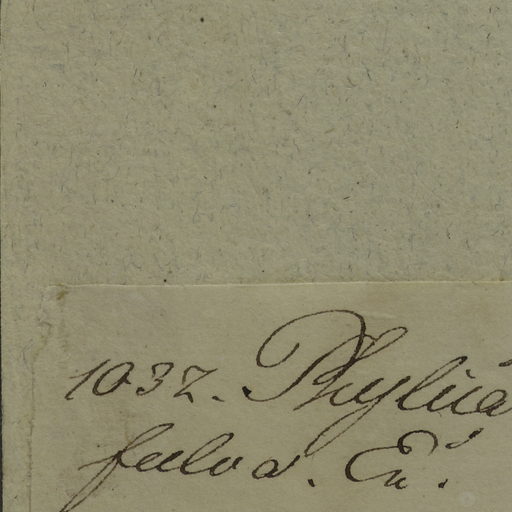 1032. Phylica
fulva. En.